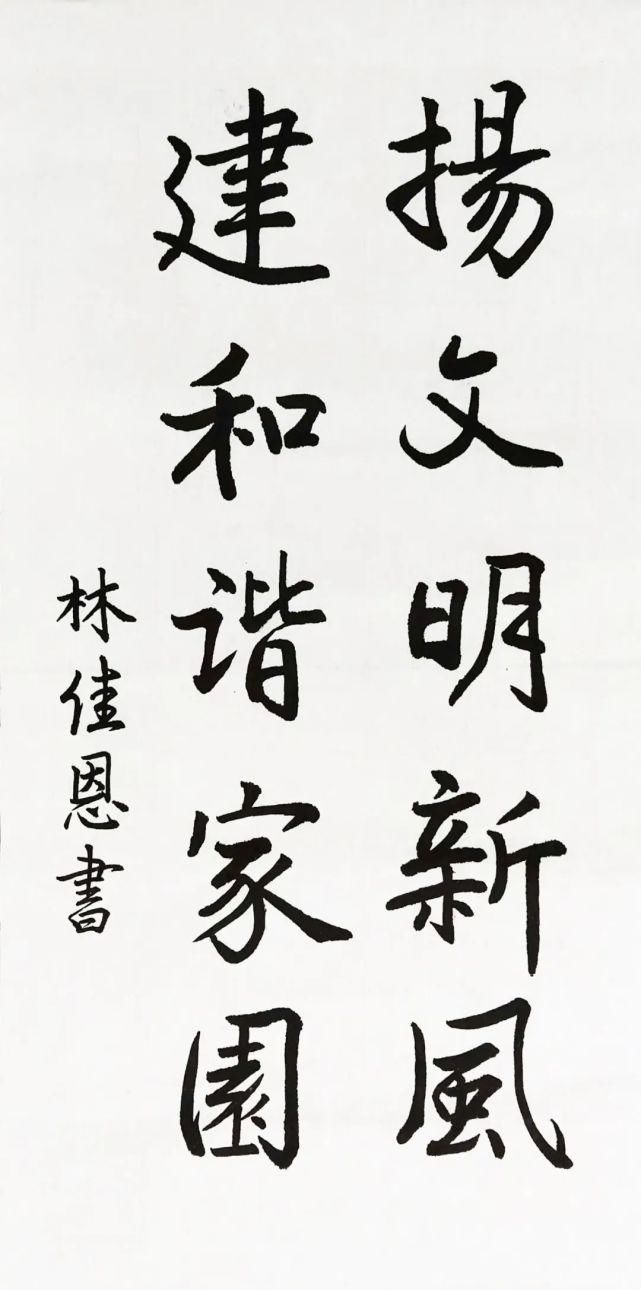 揚文明新風
建和谐家園
林佳恩書